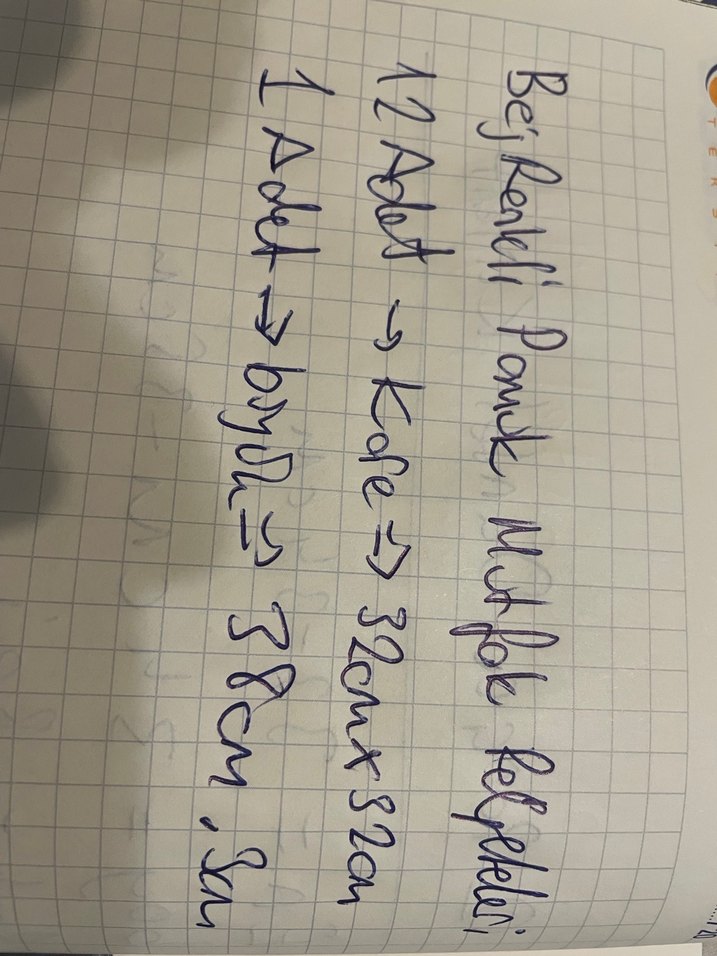 Bej Renkli Pamuk Mutfak Peçeteleri
12 Adet → Kare ⇒ 32cm x 32cm
1 Adet → büyük ⇒ 38cm .
TERS